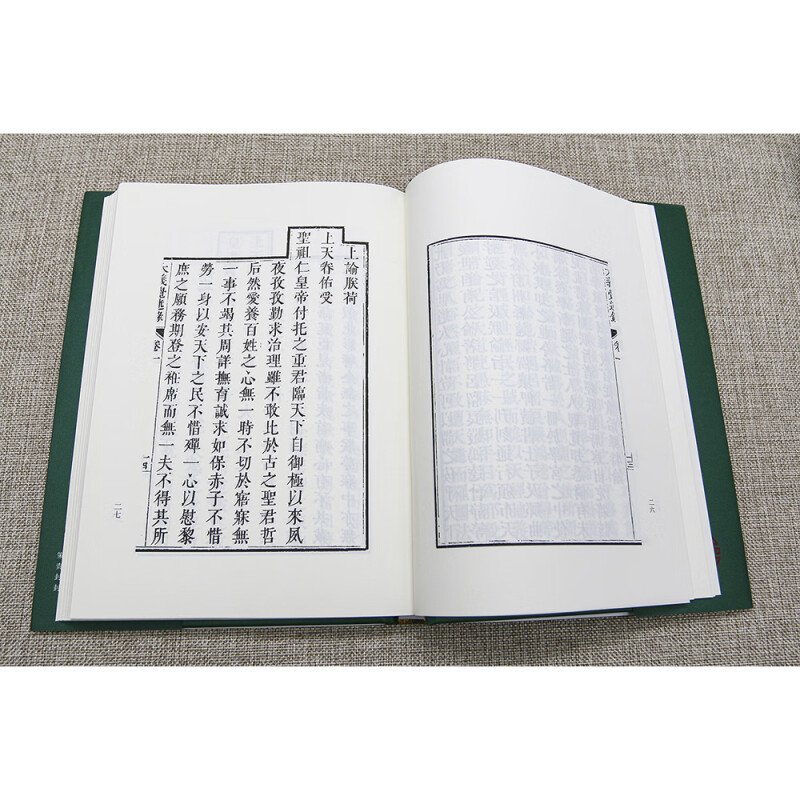 上諭朕荷
上天眷佑受
聖祖仁皇帝付托之重君臨天下自御極以來夙
夜孜孜勤求治理雖不敢比於古之聖君哲
后然愛養百姓之心無一時不切於寤寐無
一事不竭其周詳撫育誠求如保赤子不惜
勞一身以安天下之民不惜殫一心以慰黎
庶之願務期登之袵席而無一夫不得其所
大義覺迷錄
卷一
二七
二六